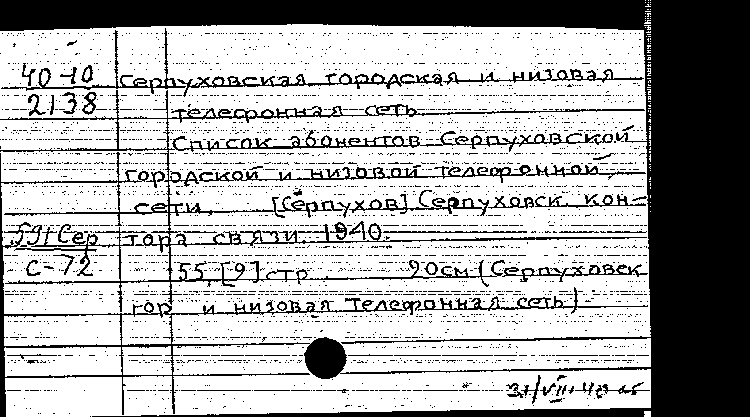 40-10
2138
Серпуховская городская и низовая
телефонная сеть.
Список абонентов Серпуховской
городской и низовой телефонной
сети. [Серпухов] Серпуховск. кон-
тора связи. 1940.
591 Сер
С-72
55, [9] стр. 20см (Серпуховск
гор и низовая телефонная сеть)
31/VIII 40